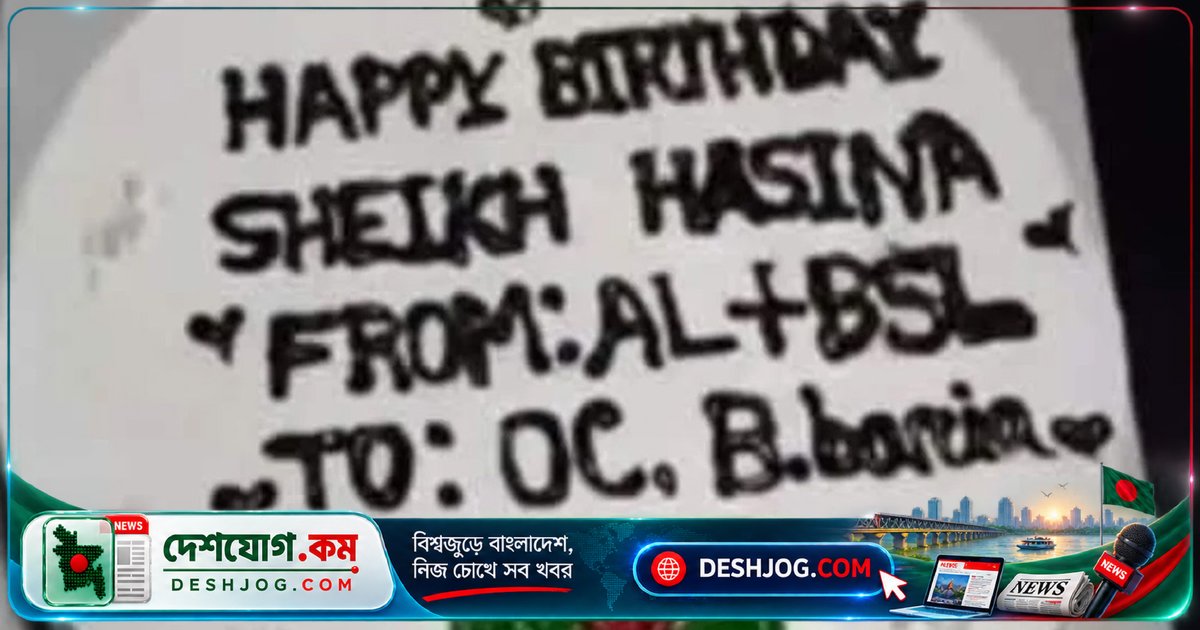 HAPPY BIRTHDAY
SHEIKH HASINA
FROM: AL+BSL
TO: OC, B.baria
NEWS
দেশযোগ.কম
DESHJOG.COM
বিশ্বজুড়ে বাংলাদেশ,
নিজ চোখে সব খবর
DESHJOG.COM
NEWS
NEWS